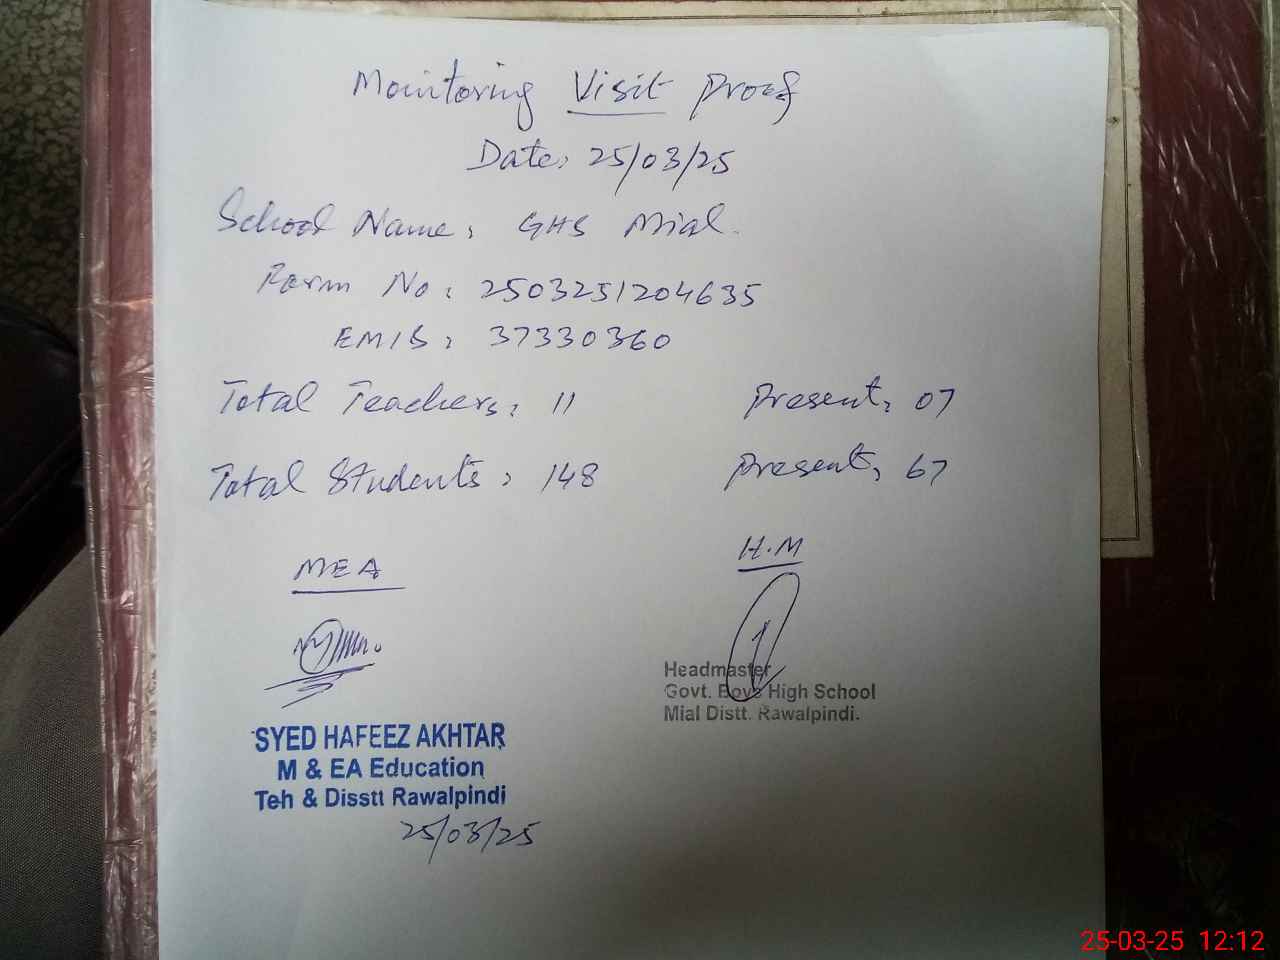 Monitoring Visit Proof
Date: 25/03/25
School Name: GHS Mial.
Form No: 2503251204635
EMIS: 37330360
Total Teachers: 11 Present: 07
Total Students: 148 Present: 67
MEA H.M
Headmaster
Govt. Boys High School
Mial Distt. Rawalpindi.
SYED HAFEEZ AKHTAR
M & EA Education
Teh & Disstt Rawalpindi
25/03/25
25-03-25 12:12